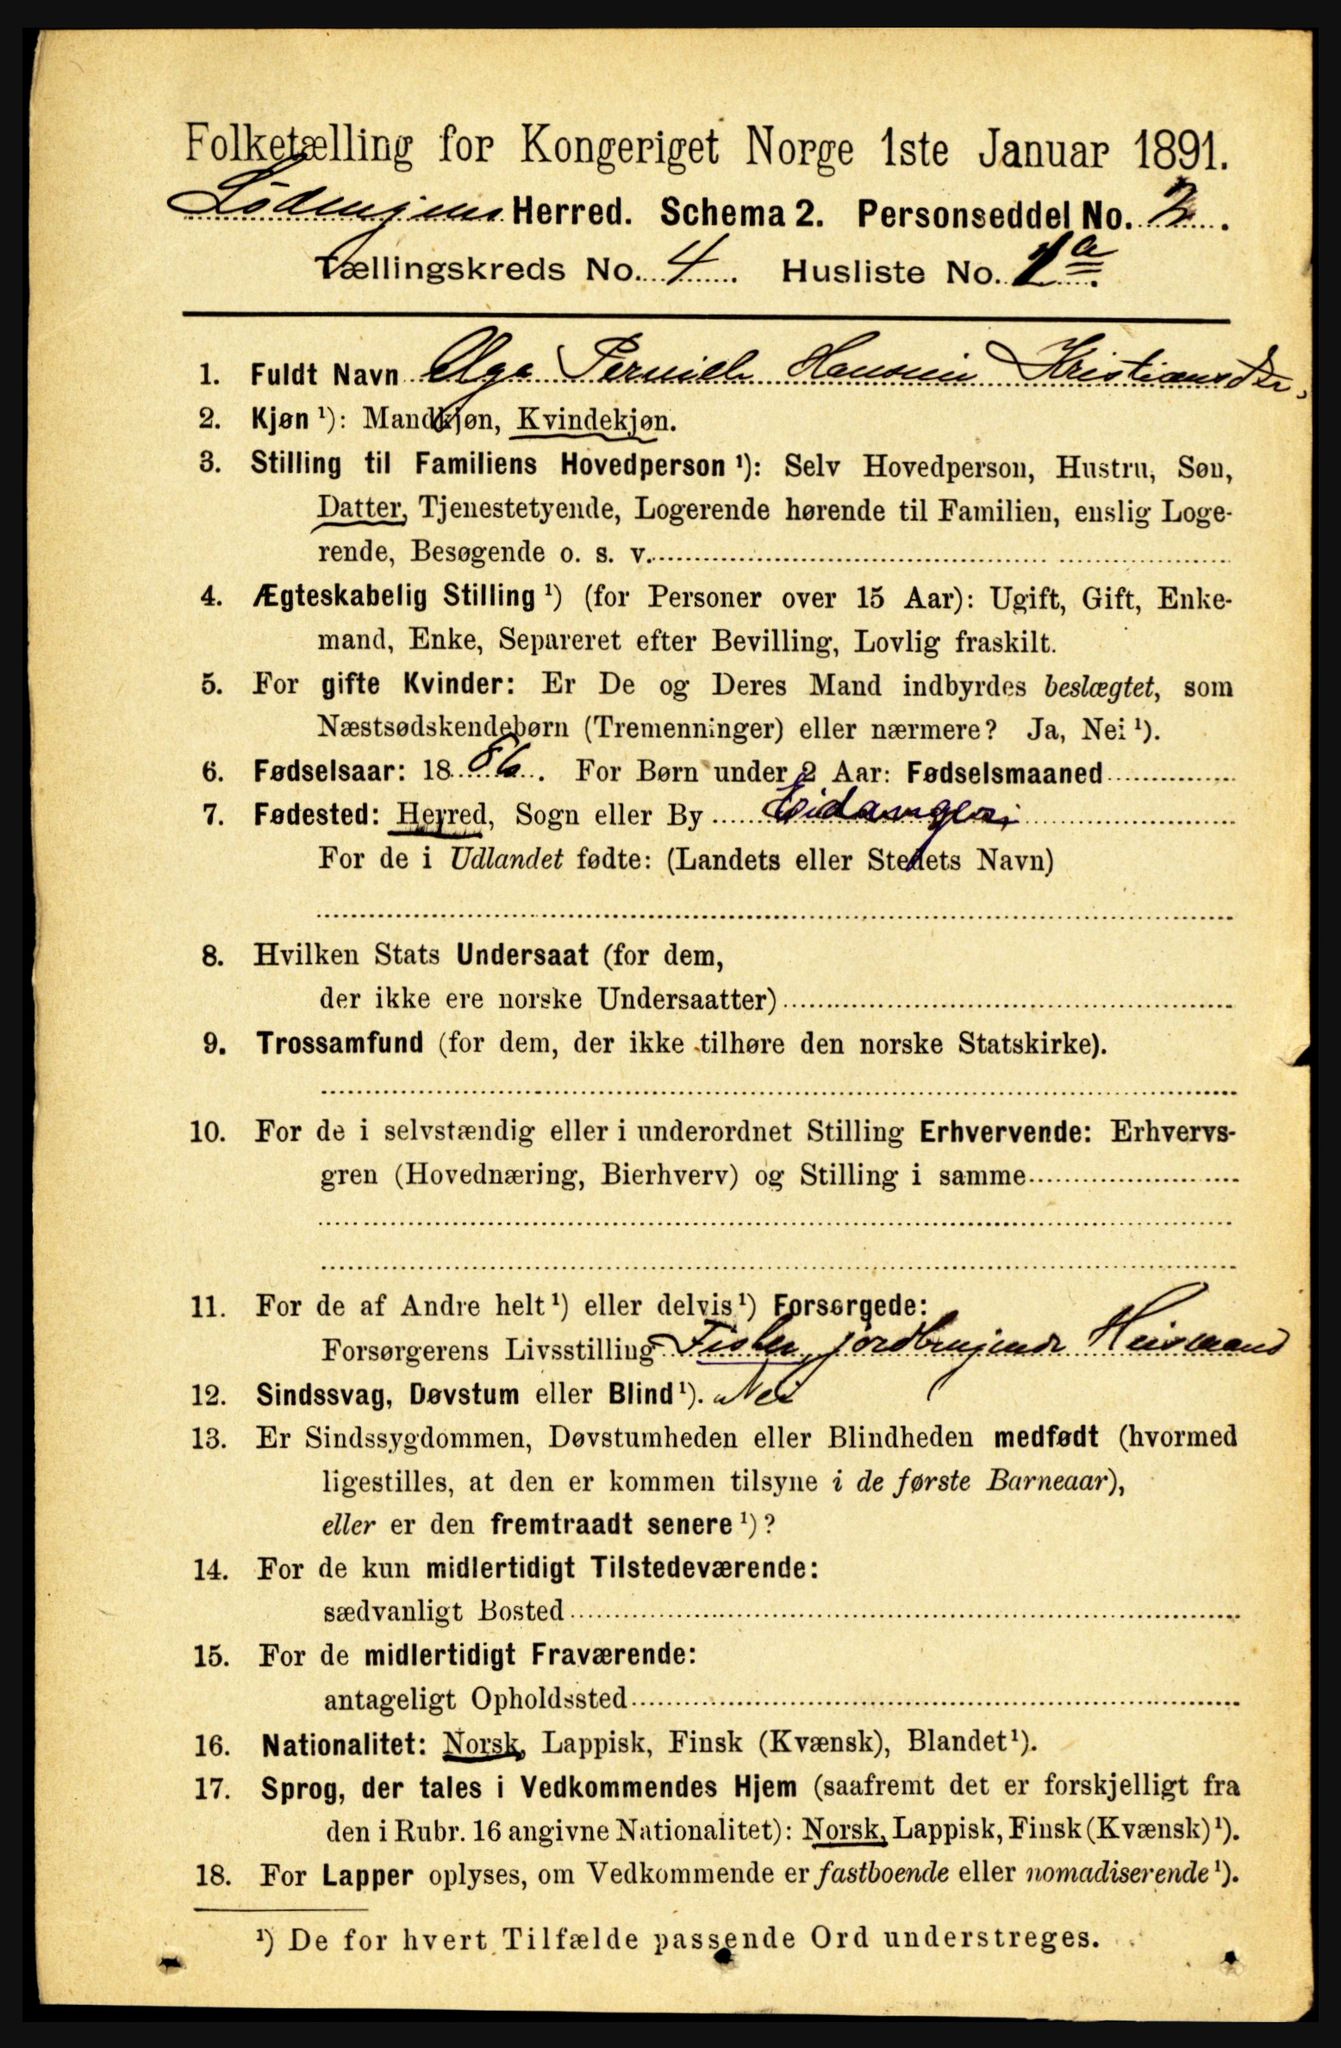 Folketælling for Kongeriget Norge 1ste Januar 1891.
Lødingens Herred. Schema 2. Personseddel No. 2.
Tællingskreds No. 4. Husliste No. 1a.
1. Fuldt Navn Olga Hansen Kristiansdtr.
2. Kjøn ¹): Mandkjøn, Kvindekjøn.
3. Stilling til Familiens Hovedperson ¹): Selv Hovedperson, Hustru, Søn,
Datter, Tjenestetyende, Logerende hørende til Familien, enslig Loge-
rende, Besøgende o. s. v.
4. Ægteskabelig Stilling ¹) (for Personer over 15 Aar): Ugift, Gift, Enke-
mand, Enke, Separeret efter Bevilling, Lovlig fraskilt.
5. For gifte Kvinder: Er De og Deres Mand indbyrdes beslægtet, som
Næstsødskendebørn (Tremenninger) eller nærmere? Ja, Nei ¹).
6. Fødselsaar: 1886. For Børn under 2 Aar: Fødselsmaaned
7. Fødested: Herred, Sogn eller By
For de i Udlandet fødte: (Landets eller Stedets Navn)
8. Hvilken Stats Undersaat (for dem,
der ikke ere norske Undersaatter)
9. Trossamfund (for dem, der ikke tilhøre den norske Statskirke).
10. For de i selvstændig eller i underordnet Stilling Erhvervende: Erhvervs-
gren (Hovednæring, Bierhverv) og Stilling i samme
11. For de af Andre helt ¹) eller delvis ¹) Forsørgede:
Forsørgerens Livsstilling Fisker, jordbrugende Husmand
12. Sindssvag, Døvstum eller Blind ¹). Nei
13. Er Sindssygdommen, Døvstumheden eller Blindheden medfødt (hvormed
ligestilles, at den er kommen tilsyne i de første Barneaar),
eller er den fremtraadt senere ¹)?
14. For de kun midlertidigt Tilstedeværende:
sædvanligt Bosted
15. For de midlertidigt Fraværende:
antageligt Opholdssted
16. Nationalitet: Norsk, Lappisk, Finsk (Kvænsk), Blandet ¹).
17. Sprog, der tales i Vedkommendes Hjem (saafremt det er forskjelligt fra
den i Rubr. 16 angivne Nationalitet): Norsk, Lappisk, Finsk (Kvænsk) ¹).
18. For Lapper oplyses, om Vedkommende er fastboende eller nomadiserende ¹).
¹) De for hvert Tilfælde passende Ord understreges.